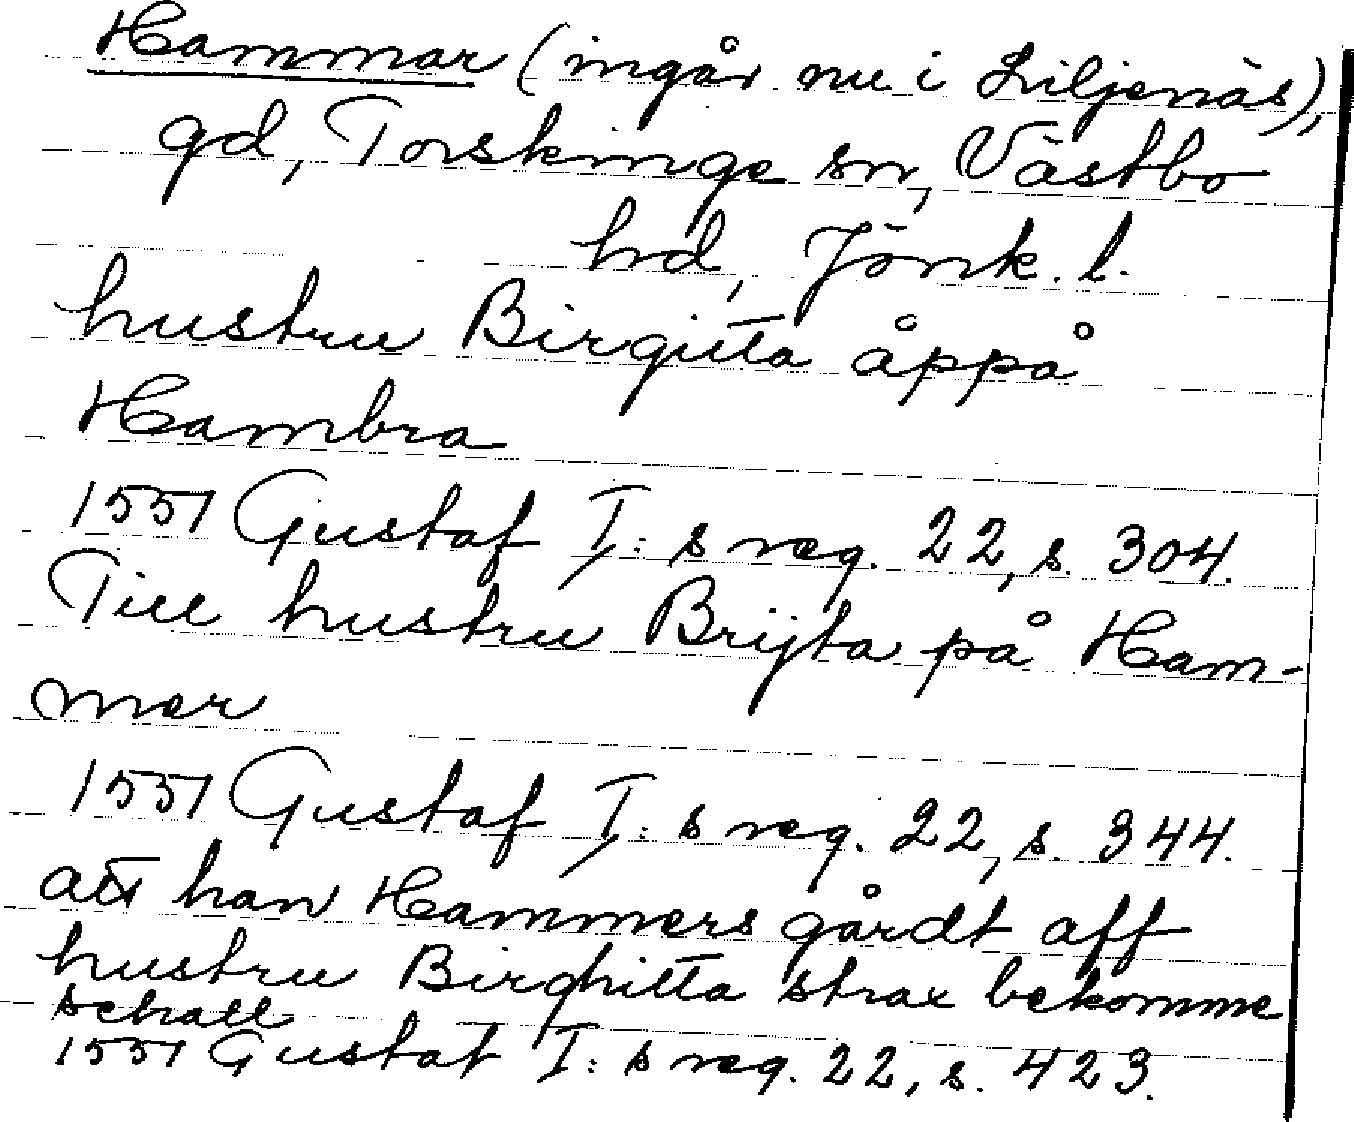 Hammar (ingår nu i Liljenäs),
gd, Torskinge sn, Västbo
hd, Jönk. l.
hustru Birgitta åppå
Hambra
1551 Gustaf I: s reg. 22, s. 304.
Till hustru Brijta på Ham-
mer
1551 Gustaf I: s reg. 22, s. 344.
att han Hammers gårdt aff
hustru Birghitta strax bekomme
schall
1551 Gustaf I: s reg. 22, s. 423.